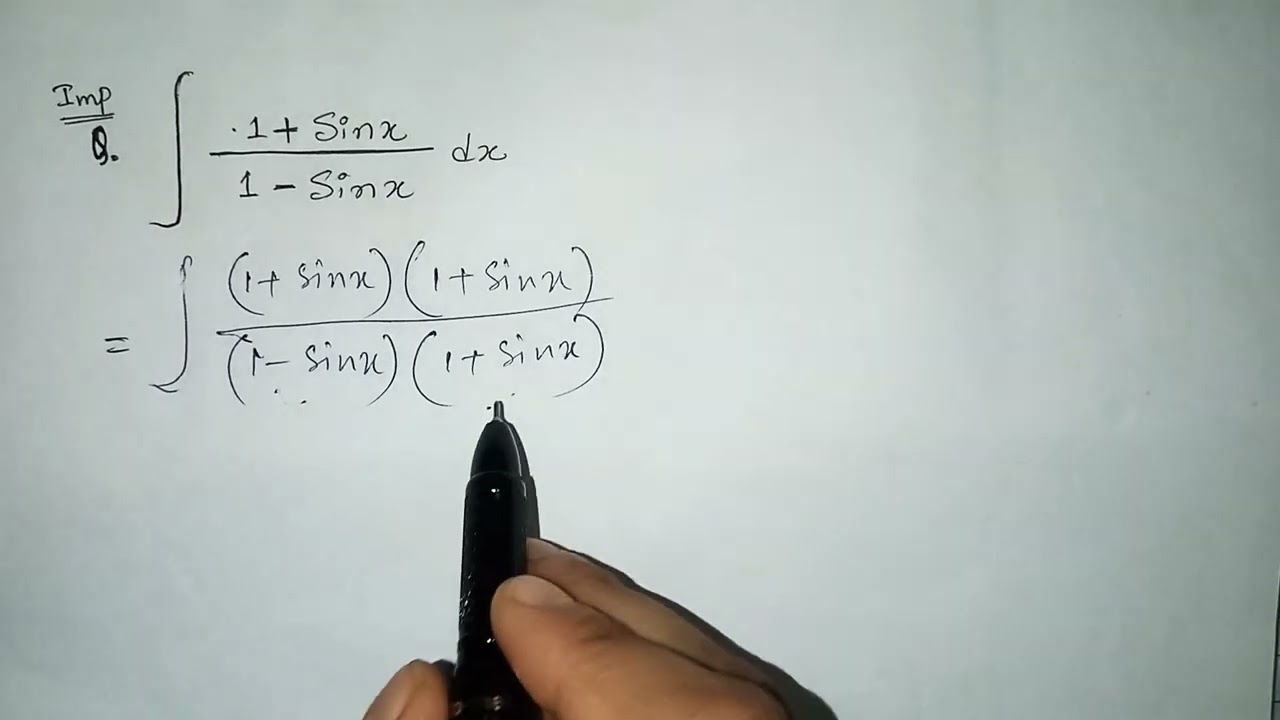 Imp
Q. ∫ 1 + Sinx / 1 - Sinx dx
= ∫ (1 + Sinx) (1 + Sinx) / (1 - Sinx) (1 + Sinx)